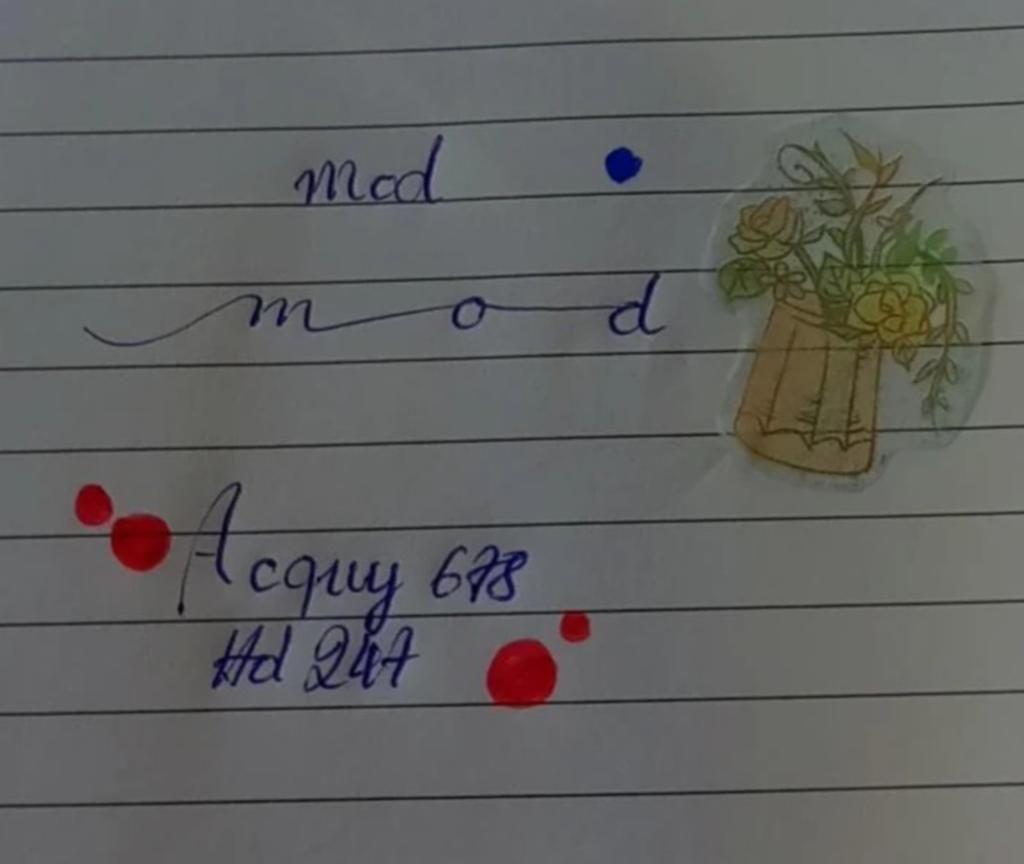 mod
mod
Acquy 678
Hd 247